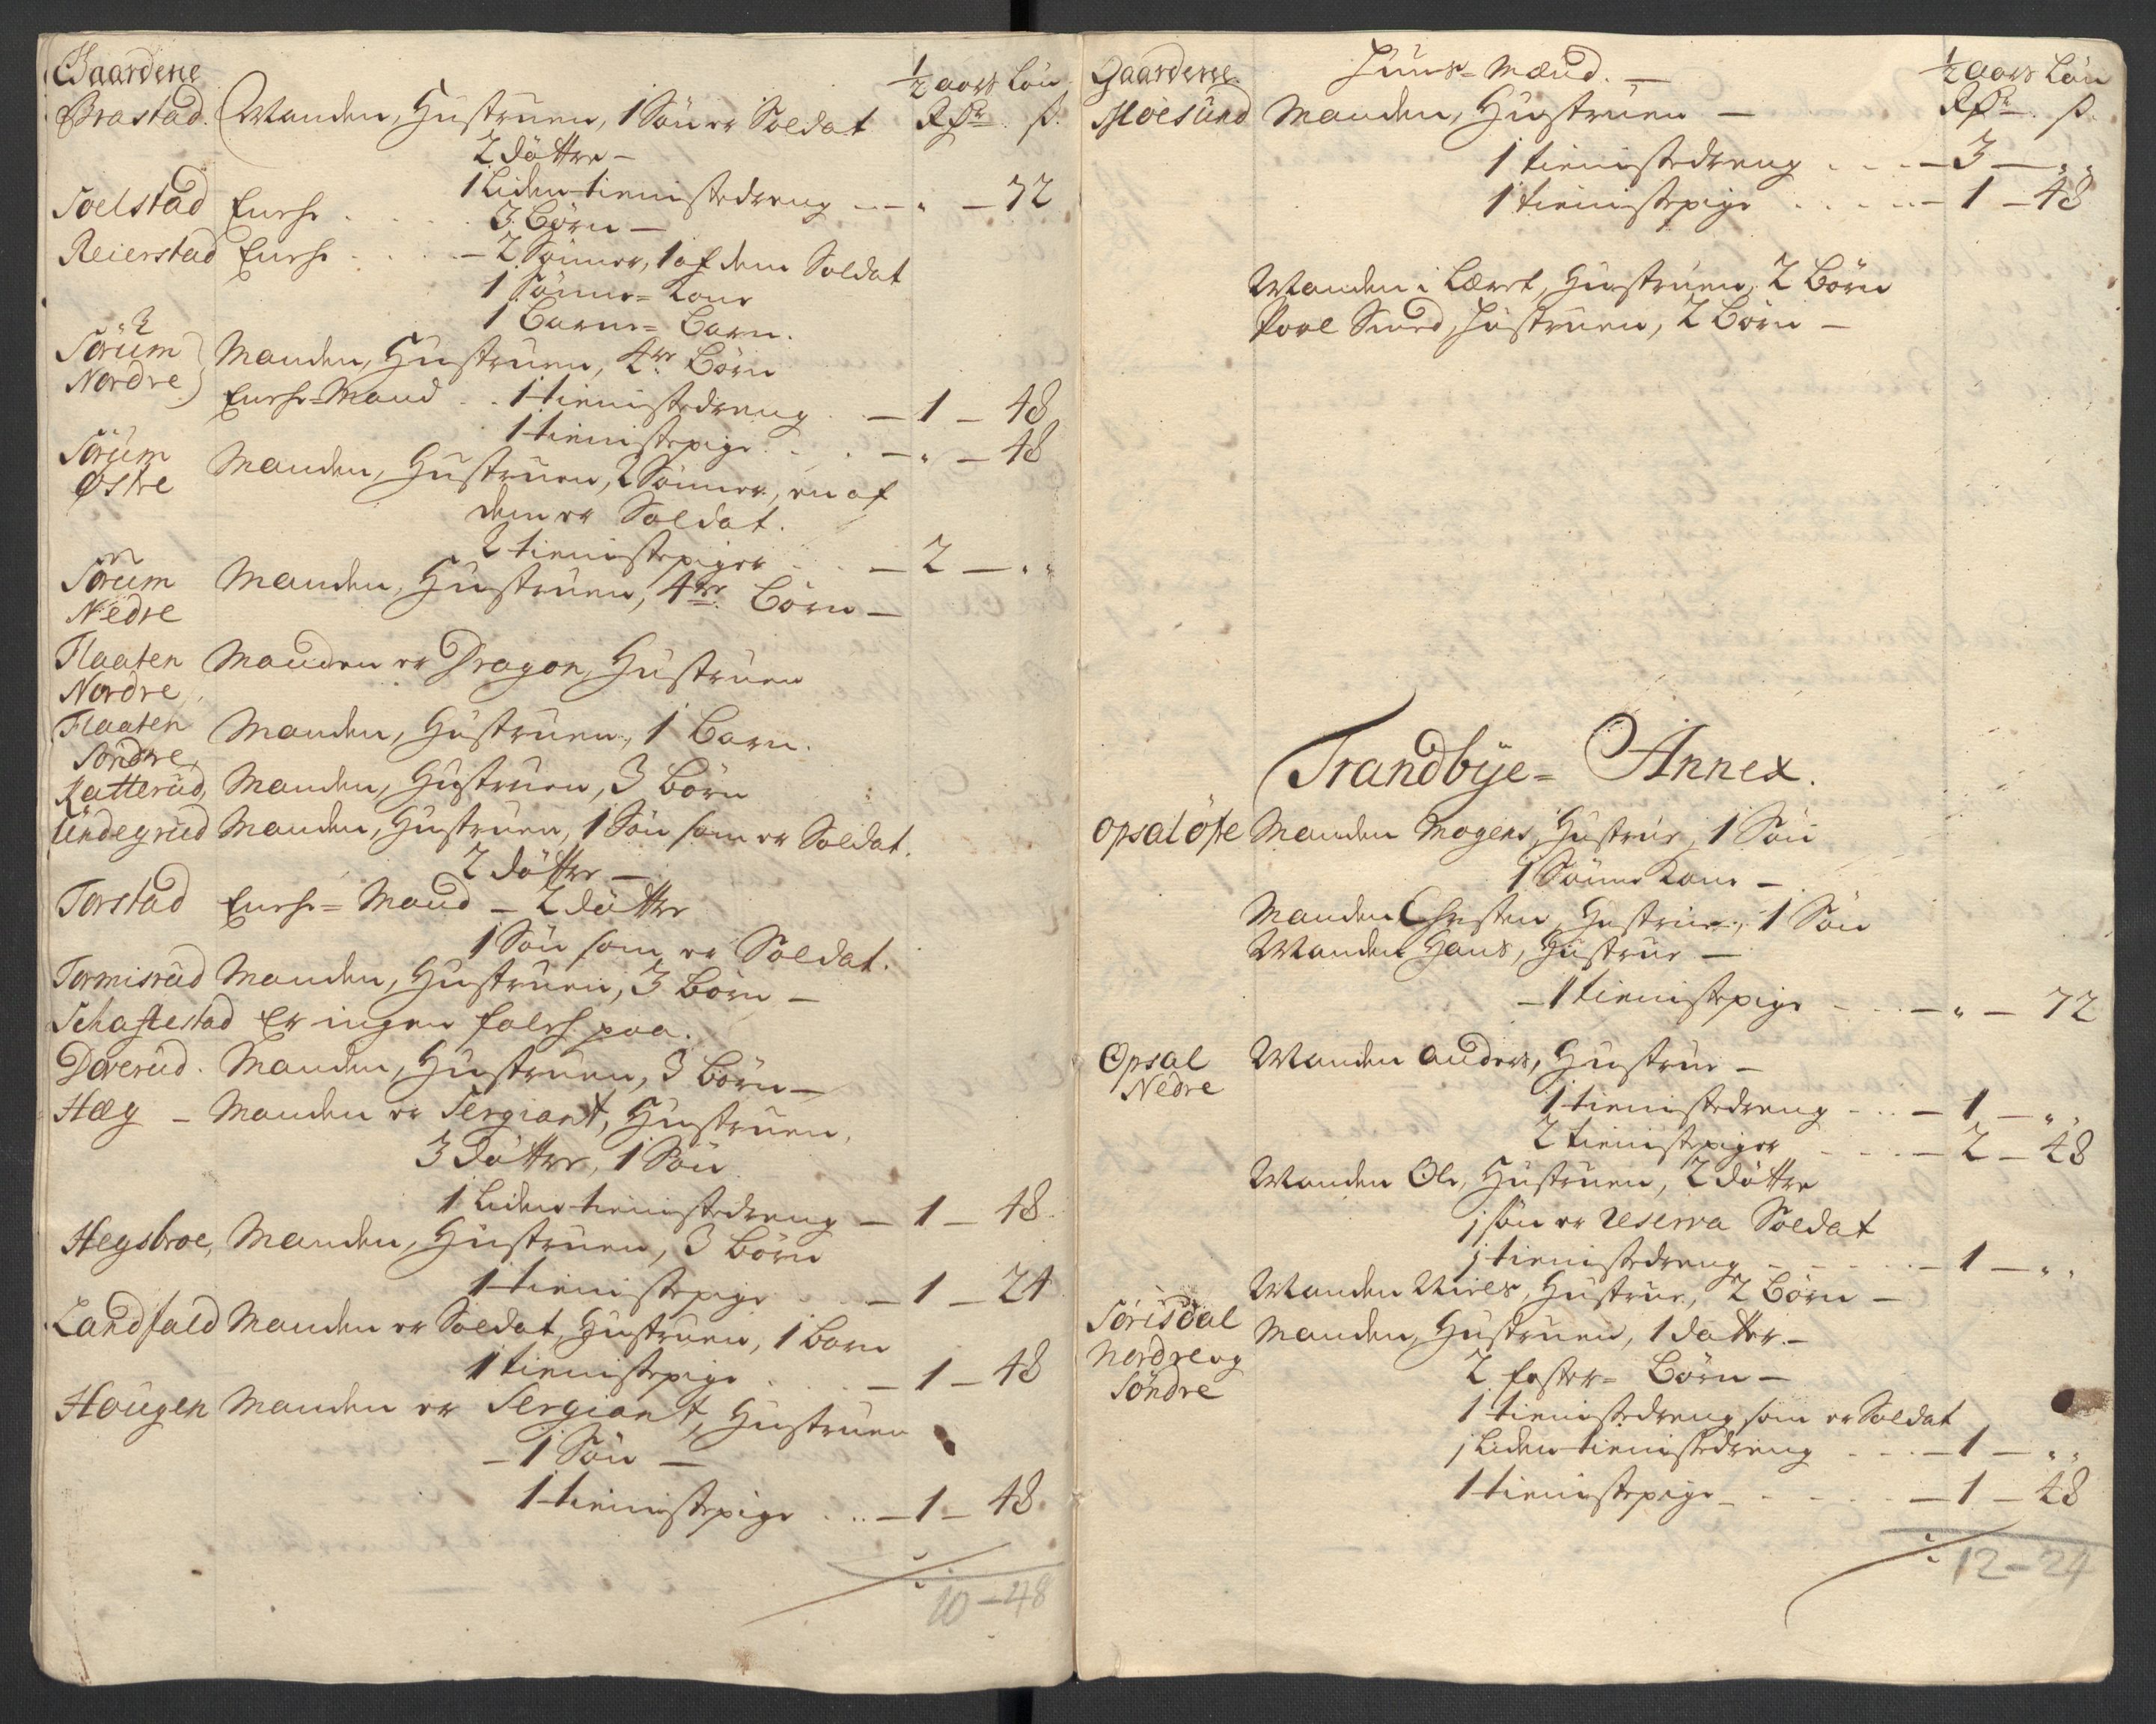 Gaardene
½ aars Løn
Brastad. Manden, Hustruen, 1 Søn er Soldat Rdr. ß.
2 døttre –
1 Liden tienistedreng - - „ – 72
Soelstad Enche . . . 3 Børn –
Reierstad Enche . . . – 2 Sønner, 1 af dem Soldat
1 Sønne=Kone
1 Barne=Barn.
Sørum Nordre Manden, Hustruen, 4re Børn
Enche-Mand . . 1 tienistedreng . – 1 – 48
1 tienistepige . . . – „ – 48
Sørum Østre Manden, Hustruen, 2 Sønner, en af
dem er Soldat.
2 tienistepiger . . – 2 – „
Sørum Nedre Manden, Hustruen, 4re Børn –
Flaaten Nordre Manden er Dragon, Hustruen
Flaaten Søndre Manden, Hustruen, 1 Barn.
Ratterud, Manden, Hustruen, 3 Børn
Lindegrud Manden, Hustruen, 1 Søn som er Soldat.
2 døttre –
Torstad Enche=Mand – 2 døttre
1 Søn som er Soldat.
Tormisrud Manden, Hustruen, 3 Børn –
Schaftestad Er ingen folch paa.
Doverud. Manden, Hustruen, 3 Børn –
Hæg – Manden er Sergiant, Hustruen,
3 døttre, 1 Søn
1 Liden tienistedreng – 1 – 48
Hegsbroe, Manden, Hustruen, 3 Børn
1 tienistepige . . – 1 – 24
Landfald Manden er Soldat, Hustruen, 1 Barn
1 tienistepige . . . – 1 – 48
Hougen Manden er Sergiant, Hustruen
– 1 Søn –
1 tienistepige . . – 1 – 48.
10 – 48
Gaardene. Huus-Mænd. – ½ aars Løn
Moesund Manden, Hustruen – Rdr. ß.
1 tienistedreng . . . – 3 – „
1 tienistepige . . . . – 1 – 48
Manden i Læret, Hustruen, 2 Børn
Povl Smed, Hustruen, 2 Børn –
Trandbye= Annex.
Opsal Øfre Manden Mogens, Hustrue, 1 Søn
1 Sønne Kone –
Manden Chresten, Hustrue, 1 Søn
Manden Hans, Hustrue –
– 1 tienistepige - - . – „ – 72
Opsal Nedre Manden Anders, Hustrue –
1 tienistedreng - . . – 1 – „
2 tienistepiger . . . – 2 – 48
Manden Ole, Hustruen, 2 døttre
1 søn er Reserva Soldat
1 tienistedreng - - - – 1 – „
Manden Niels, Hustrue, 2 Børn –
Sørisdal Nordre og Søndre Manden, Hustruen, 1 datter –
2 foster=Børn –
1 tienistedreng som er Soldat
1 Liden tienistedreng . . . – 1 – „
1 tienistepige – . . . – 1 – 48
12 – 24